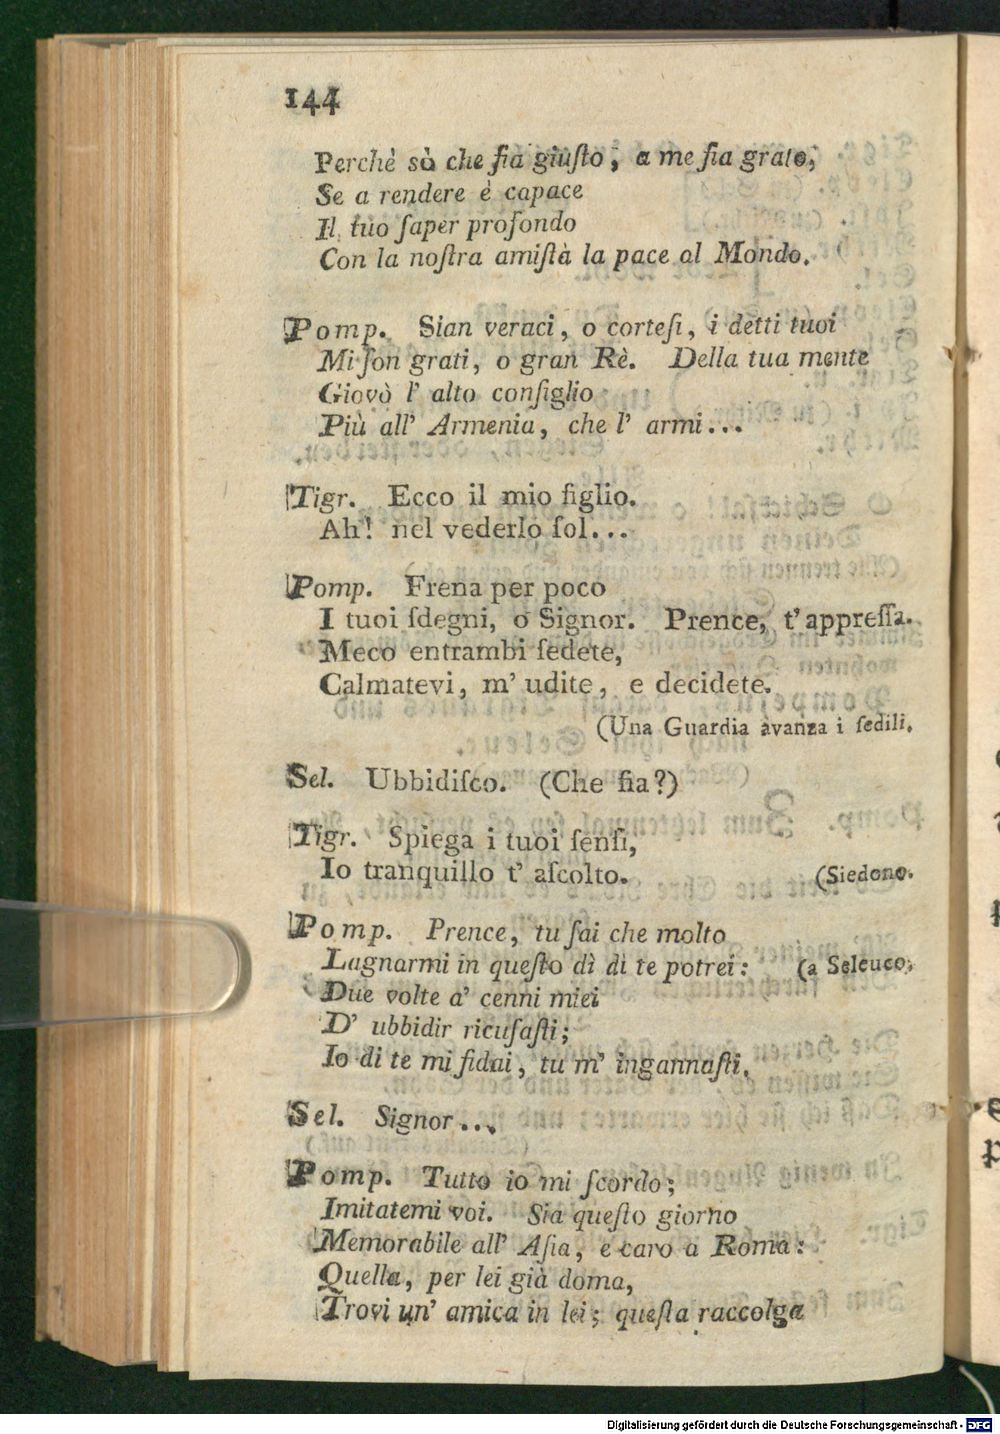 144
Perchè sò che ſia giuſto, a me ſia grato;
Se a rendere è capace
Il tuo ſaper profondo
Con la noſtra amiſtà la pace al Mondo.
Pomp. Sian veraci, o corteſi, i detti tuoi
Mi ſon grati, o gran Rè. Della tua mente
Giovò l' alto conſiglio
Più all' Armenia, che l' armi...
Tigr. Ecco il mio figlio.
Ah! nel vederlo ſol...
Pomp. Frena per poco
I tuoi ſdegni, o Signor. Prence, t' appreſſa.
Meco entrambi ſedete,
Calmatevi, m' udite, e decidete.
(Una Guardia avanza i ſedili.
Sel. Ubbidiſco. (Che ſia?)
Tigr. Spiega i tuoi ſenſi,
Io tranquillo t' aſcolto. (Siedono.
Pomp. Prence, tu ſai che molto
Lagnarmi in queſto dì di te potrei: (a Seleuco.
Due volte a' cenni miei
D' ubbidir ricuſaſti;
Io di te mi fidai, tu m' ingannaſti.
Sel. Signor...
Pomp. Tutto io mi ſcordo;
Imitatemi voi. Sia queſto giorno
Memorabile all' Aſia, e caro a Roma:
Quella, per lei già doma,
Trovi un' amica in lei; queſta raccolga
Digitalisierung gefördert durch die Deutsche Forschungsgemeinschaft - DFG